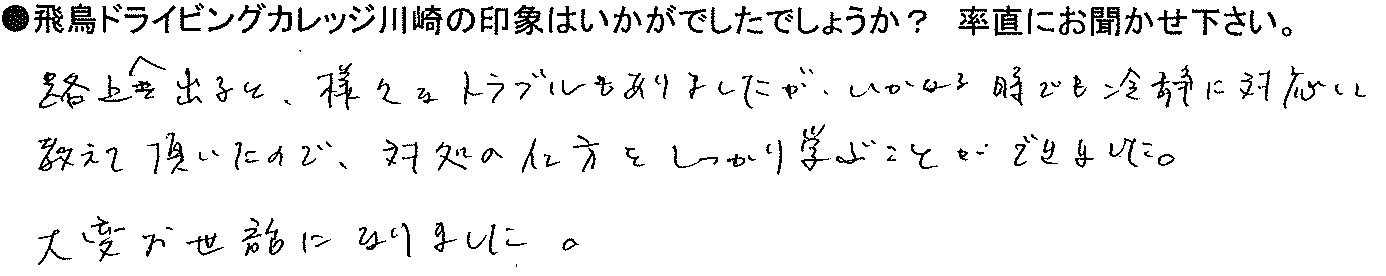 ●飛鳥ドライビングカレッジ川崎の印象はいかがでしたでしょうか？ 率直にお聞かせ下さい。
路上へ出ると、様々なトラブルもありましたが、いかなる時でも冷静に対応し
教えて頂いたので、対処の仕方をしっかり学ぶことができました。
大変お世話になりました。